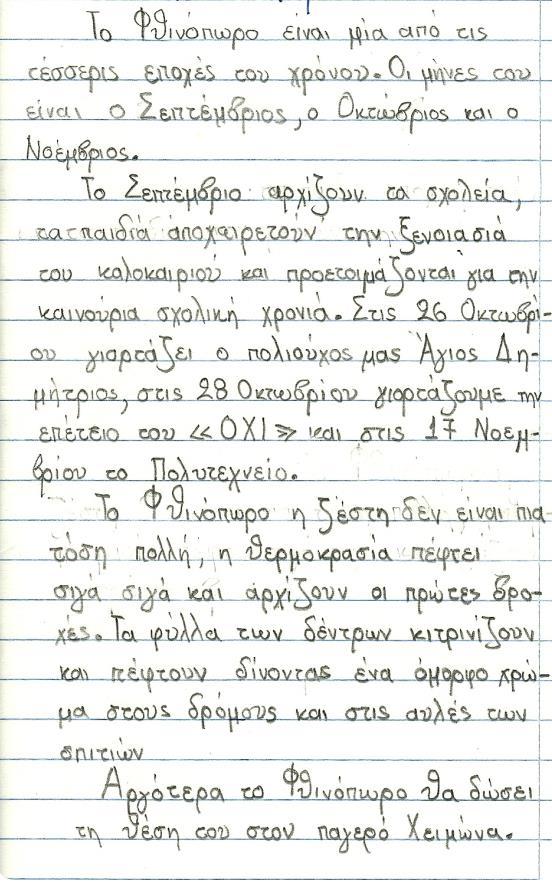 Το Φθινόπωρο είναι μία από τις
τέσσερις εποχές του χρόνου. Οι μήνες του
είναι ο Σεπτέμβριος, ο Οκτώβριος και ο
Νοέμβριος.
Το Σεπτέμβριο αρχίζουν τα σχολεία,
τα παιδιά αποχαιρετούν την ξενοιασιά
του καλοκαιριού και προετοιμάζονται για την
καινούρια σχολική χρονιά. Στις 26 Οκτωβρί-
ου γιορτάζει ο πολιούχος μας Άγιος Δη-
μήτριος, στις 28 Οκτωβρίου γιορτάζουμε την
επέτειο του «ΟΧΙ» και στις 17 Νοεμ-
βρίου το Πολυτεχνείο.
Το Φθινόπωρο η ζέστη δεν είναι πια
τόση πολλή, η θερμοκρασία πέφτει
σιγά σιγά και αρχίζουν οι πρώτες βρο-
χές. Τα φύλλα των δέντρων κιτρινίζουν
και πέφτουν δίνοντας ένα όμορφο χρώ-
μα στους δρόμους και στις αυλές των
σπιτιών
Αργότερα το Φθινόπωρο θα δώσει
τη θέση του στον παγερό Χειμώνα.